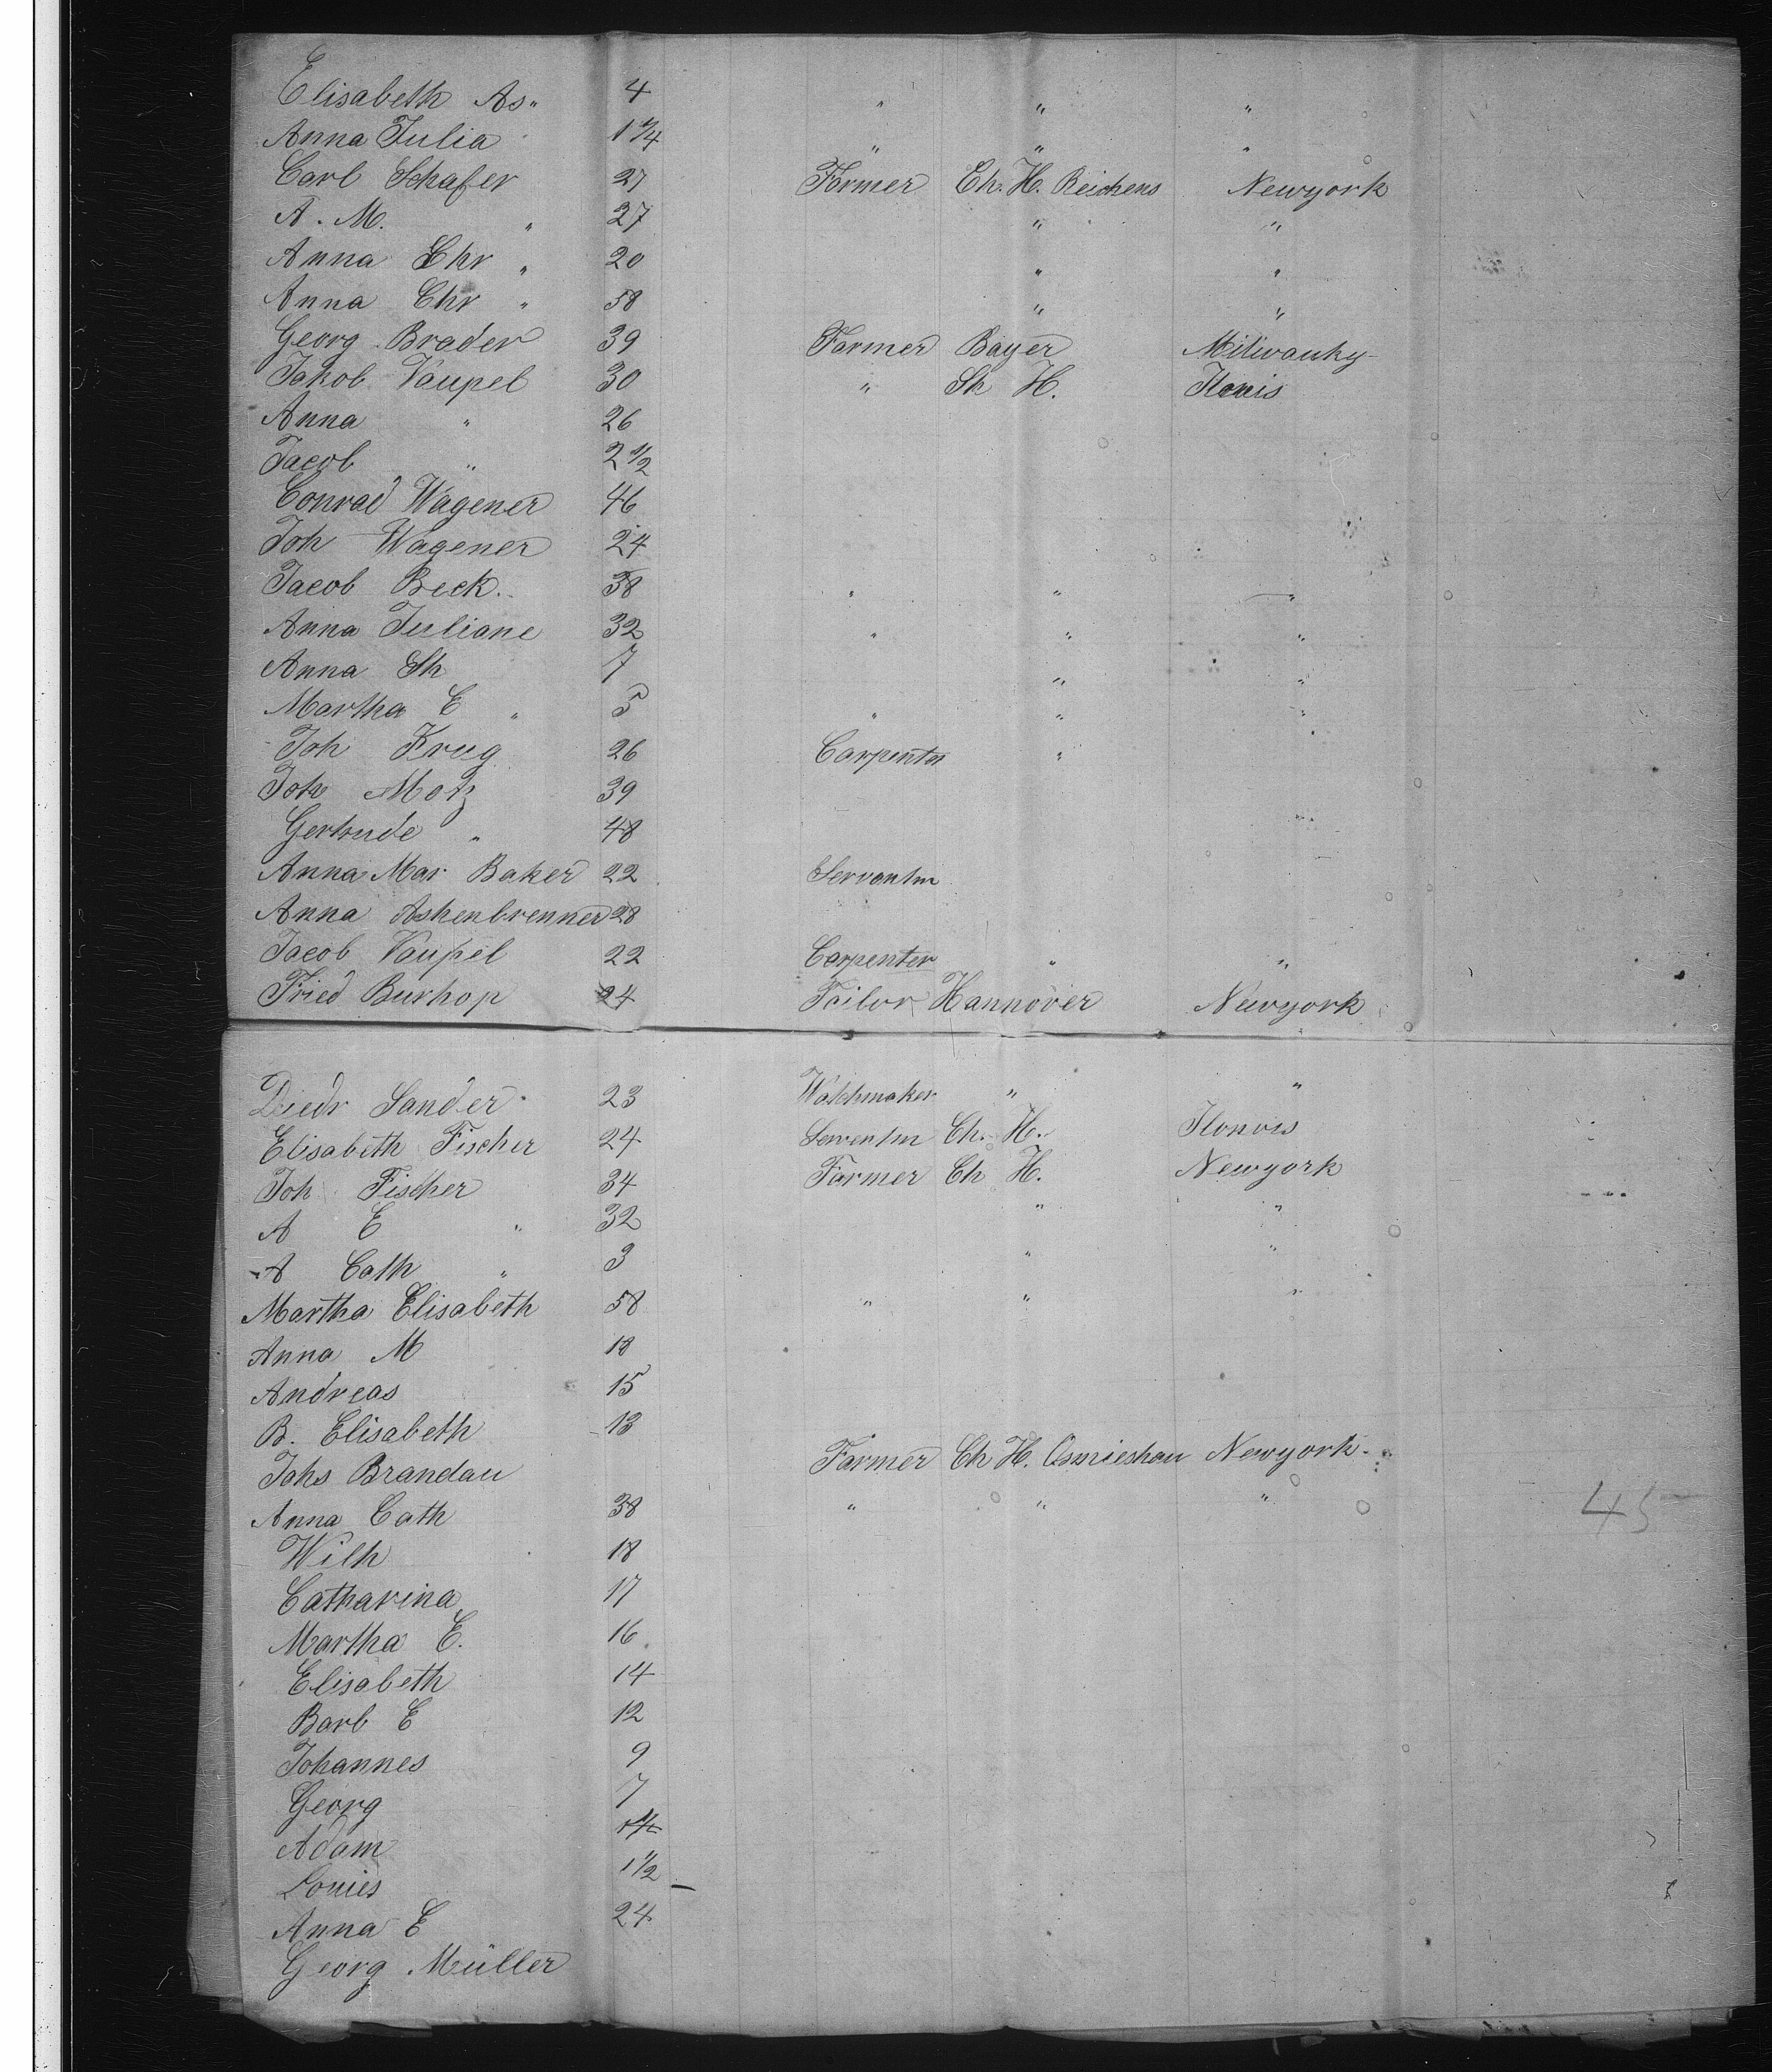 Elisabeth As " 4 " " "
Anna Julia 1 " " "
Carl Schafer 27 Farmer Ch. H. Reichens Newyork
A. M. " 27 " "
Anna Chr " 20 " "
Anna Chr " 58 " "
Georg Brader 39 Farmer Bayer Miliwauky
Jakob Vaupel 30 " Ch H. Ilonis
Anna " 26
Jacob " 2 1/2
Conrad Wagener 46
Joh Wagener 24
Jacob Beck 38 " " "
Anna Juliane 32 " " "
Anna Sh 7 " "
Martha E " 5 " " "
Joh Krug 26 Carpenter "
Joh Motz 39
Gertrude " 48
Anna Mar Baker 22 Servantm
Anna Ashenbrenner 28
Jacob Vaupel 22 Carpenter " "
Fried Burhop 24 Tailor Hannover Newyork
Diedr Sander 23 Watchmaker " "
Elisabeth Fischer 24 Serventm Ch. H. Ilonois
Joh Fischer 34 Farmer Ch H. Newyork
A E " 32 " "
A Cath " 3 " "
Martha Elisabeth 58 " " "
Anna M 18
Andreas 15
B. Elisabeth 13
Johs Brandau Farmer Ch H. Newyork
Anna Cath 38 " " "
45
Wilh 18
Catharina 17
Martha E. 16
Elisabeth 14
Barb E 12
Johannes 9
Georg 7
Adam 4
Louies 1 1/2
Anna E 24
Georg Müller